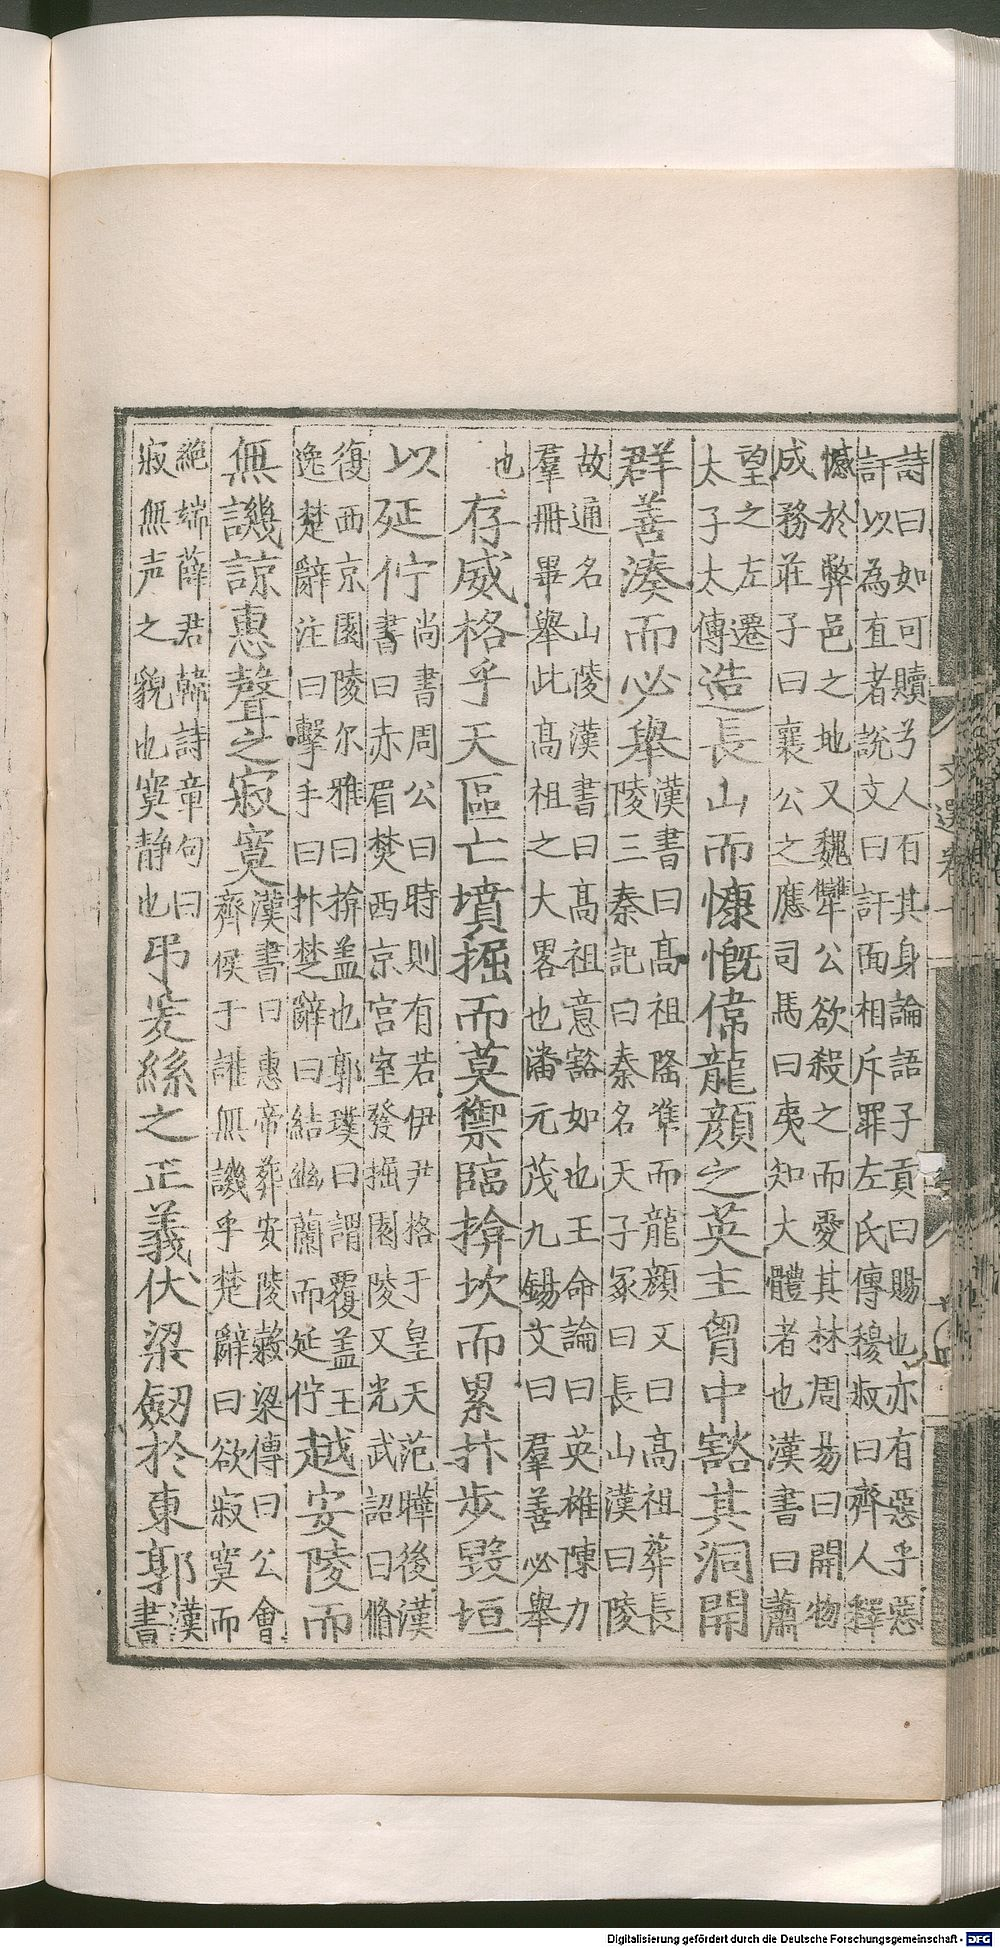 文選卷十
詩曰如可贖兮人有其身論語子貢曰賜也亦有惡乎惡
訐以為直者說文曰訐面相斥罪左氏傳穆叔曰齊人釋
憾於弊邑之地又魏犨公欲殺之而愛其材周易曰開物
成務莊子曰襄公之應司馬曰夷知大體者也漢書曰蕭
望之左遷
太子太傅
造長山而慷慨偉龍顏之英主胷中豁其洞開
群善湊而必舉
漢書曰高祖隆準而龍顏又曰高祖葬長
陵三秦記曰秦名天子冢曰長山漢曰陵
故通名山陵漢書曰高祖意豁如也王命論曰英雄陳力
羣冊畢舉此高祖之大畧也潘元茂九錫文曰羣善必舉
也
存威格乎天區亡墳掘而莫禦臨揜坎而累抃步毀垣
以延佇
尚書周公曰時則有若伊尹格于皇天范曄後漢
書曰赤眉焚西京宮室發掘園陵又光武詔曰脩
復西京園陵尔雅曰揜盖也郭璞曰謂覆盖王
逸楚辭注曰擊手曰抃楚辭曰結幽蘭而延佇
越安陵而
無譏諒惠聲之寂寞
漢書曰惠帝葬安陵穀梁傳曰公會
齊侯于讙無譏乎楚辭曰欲寂寞而
絕端薛君韓詩章句曰
寂無声之貌也寞静也
弔爰絲之正義伏梁劒於東郭
漢
書
Digitalisierung gefördert durch die Deutsche Forschungsgemeinschaft - DFG